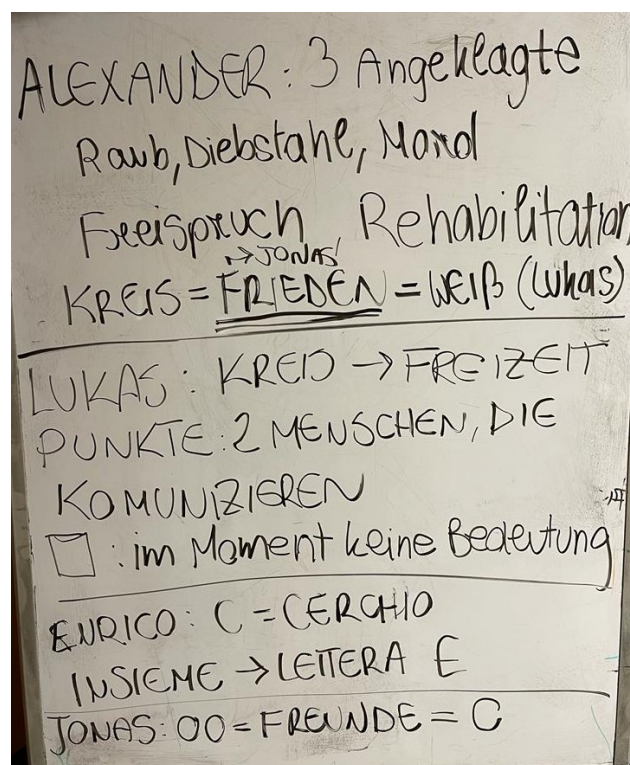 ALEXANDER: 3 Angeklagte
Raub, Diebstahl, Mord
Freispruch, Rehabilitation
→ JONAS
KREIS = FRIEDEN = WEIß (Lukas)
LUKAS: KREIS → FREIZEIT
PUNKTE: 2 MENSCHEN, DIE
KOMUNIZIEREN
: im Moment keine Bedeutung
ENRICO: C = CERCHIO
INSIEME → LETTERA E
JONAS: OO = FREUNDE = C